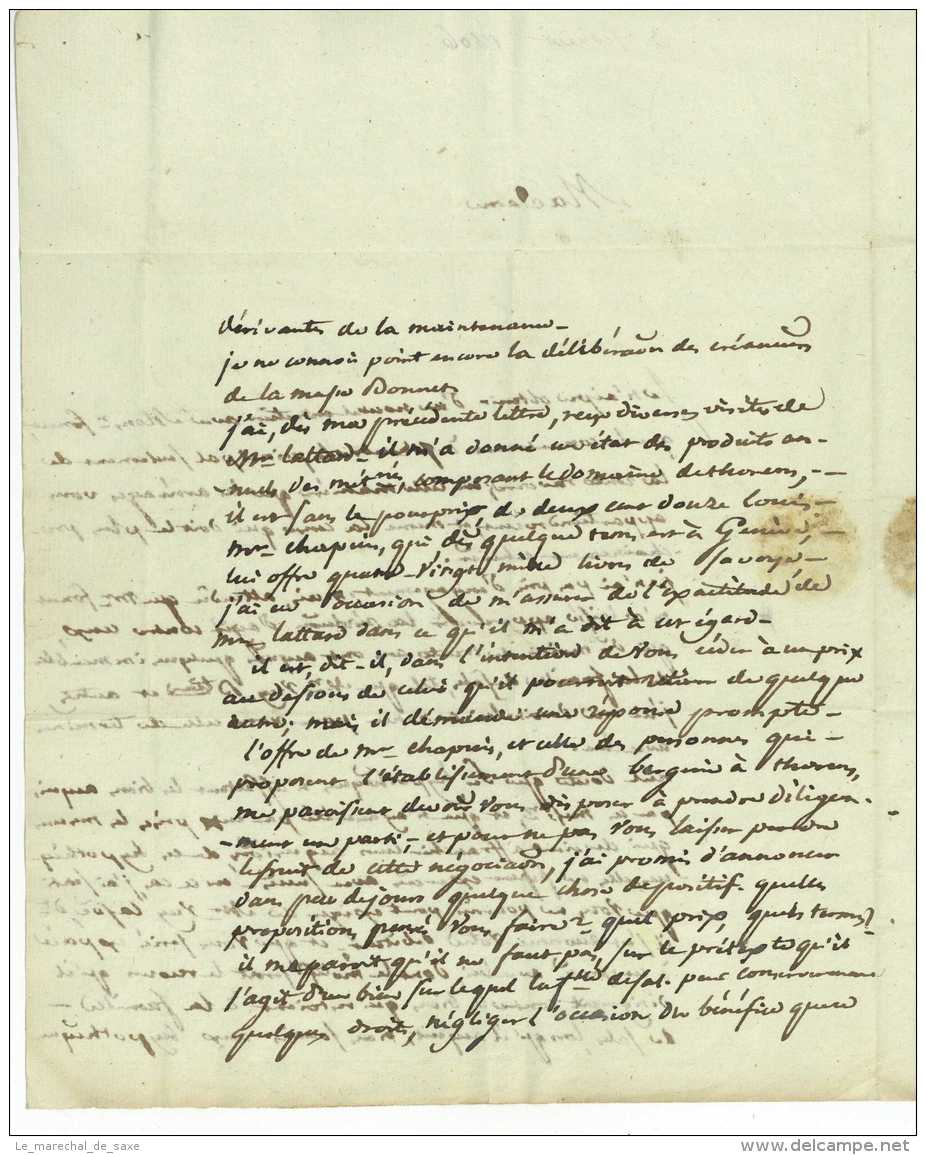 dérivantes de la maintenance -
je ne connois point encore la délibéraõn des créanciers
de la masse Bonnet
j'ai, dès ma précédente lettre, reçu diverses visites de
Mr. lattard - il m'a donné un état des produits an-
nuels des composant le domaine de thorens, -
il est sans le pourprix, de deux cent douze louis -
Mr. chapuis, qui, dès quelque tems est à Genève,
lui offre quatre-vingt mille livres de Savoye -
j'ai eu occasion de m'assurer de l'exactitude de
Mr. lattard dans ce qu'il m'a dit à cet égard -
il est, dit-il, dans l'intention de vous céder à un prix
au dessous de celui qu'il pourroit retirer de quelque
autre; mais il demande une réponse prompte -
l'offre de Mr. chapuis, et celle des personnes qui -
proposent l'établissement d'une à thorens,
me paroissent devoir vous disposer à prendre diligem-
-ment un parti, - et pour ne pas vous laisser perdre
le fruit de cette négociaõn, j'ai promis d'annoncer
dans peu de jours quelque chose de positif. quelles
propositions pensés vous faire? quel prix, quels termes?
il me paroit qu'il ne faut pas, sur le prétexte qu'il
s'agit d'un bien sur lequel la de Sal. peut conserver
quelques droits, négliger l'occasion du bénéfice que ce
Le_marechal_de_saxe
www.delcampe.net